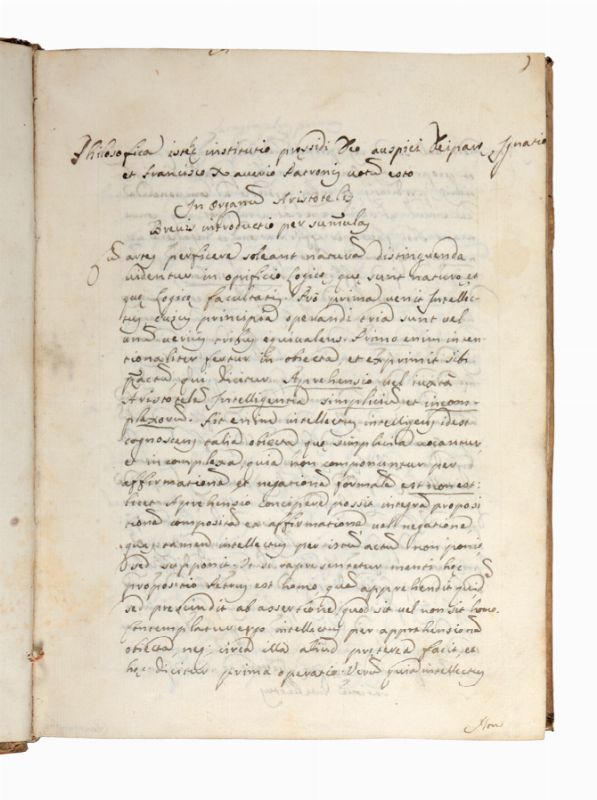 Philosofica istęc institutio pręsidi Deo auspici Deipare, Ignatio
et Francisco Xaverio Patronis votũ esto
In Organũ Aristotelis
Brevis introductio per sumulas
artes perficere soleant naturã distinguenda
videntur in opificio Logico, quę sunt naturę, et
quę Logicę facultatis. Pró prima venis Intellec-
tus cuius principia operandi tria sunt vel
unũ verius tribus equivalens. Primo enim inten-
tionaliter fertur in obiecta, et exprimit sibi
actus qui dicitur Aprehensio vel iuxta
Aristotelem Intelligentia simpliciũ et incom-
plexorũ. Sit enim intellectus intelligens idest
cognoscens talia obiecta quę simplicia vocantur,
et incomplexa, quia non componuntur per
affirmationẽ et negationẽ formalẽ est non est.
licet Aprehensio concipere possit integrã proposi
tionẽ compositã ex affirmatione vel negatione,
quas tamen intellectus per istũ actũ non ponit,
sed supponit. Ut si rapresentetur menti hęc
propositio Petrus est homo, quã apprehendit quidẽ
sed presundit ab assertione, quod sit vel non sit homo.
Contemplatur ergo intellectus per apprehensionẽ
obiecta, neq; circa illa aliud preterea facit, et
hęc dicitur prima operatio. Verũ quia intellectus
Non